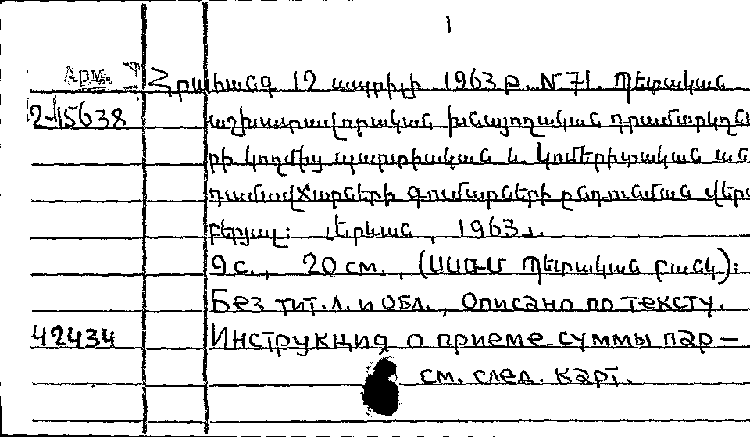 1
Арм. Հրահանգ 12 ապրիլի 1963թ. N 71. Պետական
2-15638 աշխատավորական խնայողական դրամարկղնե
րի կողմից պարտիական և կոմերիտական ան
դամավճարների գումարների ընդունման վերա
բերյալ: Երևան, 1963թ.
9с., 20 см., (ՍՍՌՄ Պետական բանկ):
Без тит.л. и обл., Описано по тексту.
42434 Инструкция о приеме суммы пар-
см. след. карт.